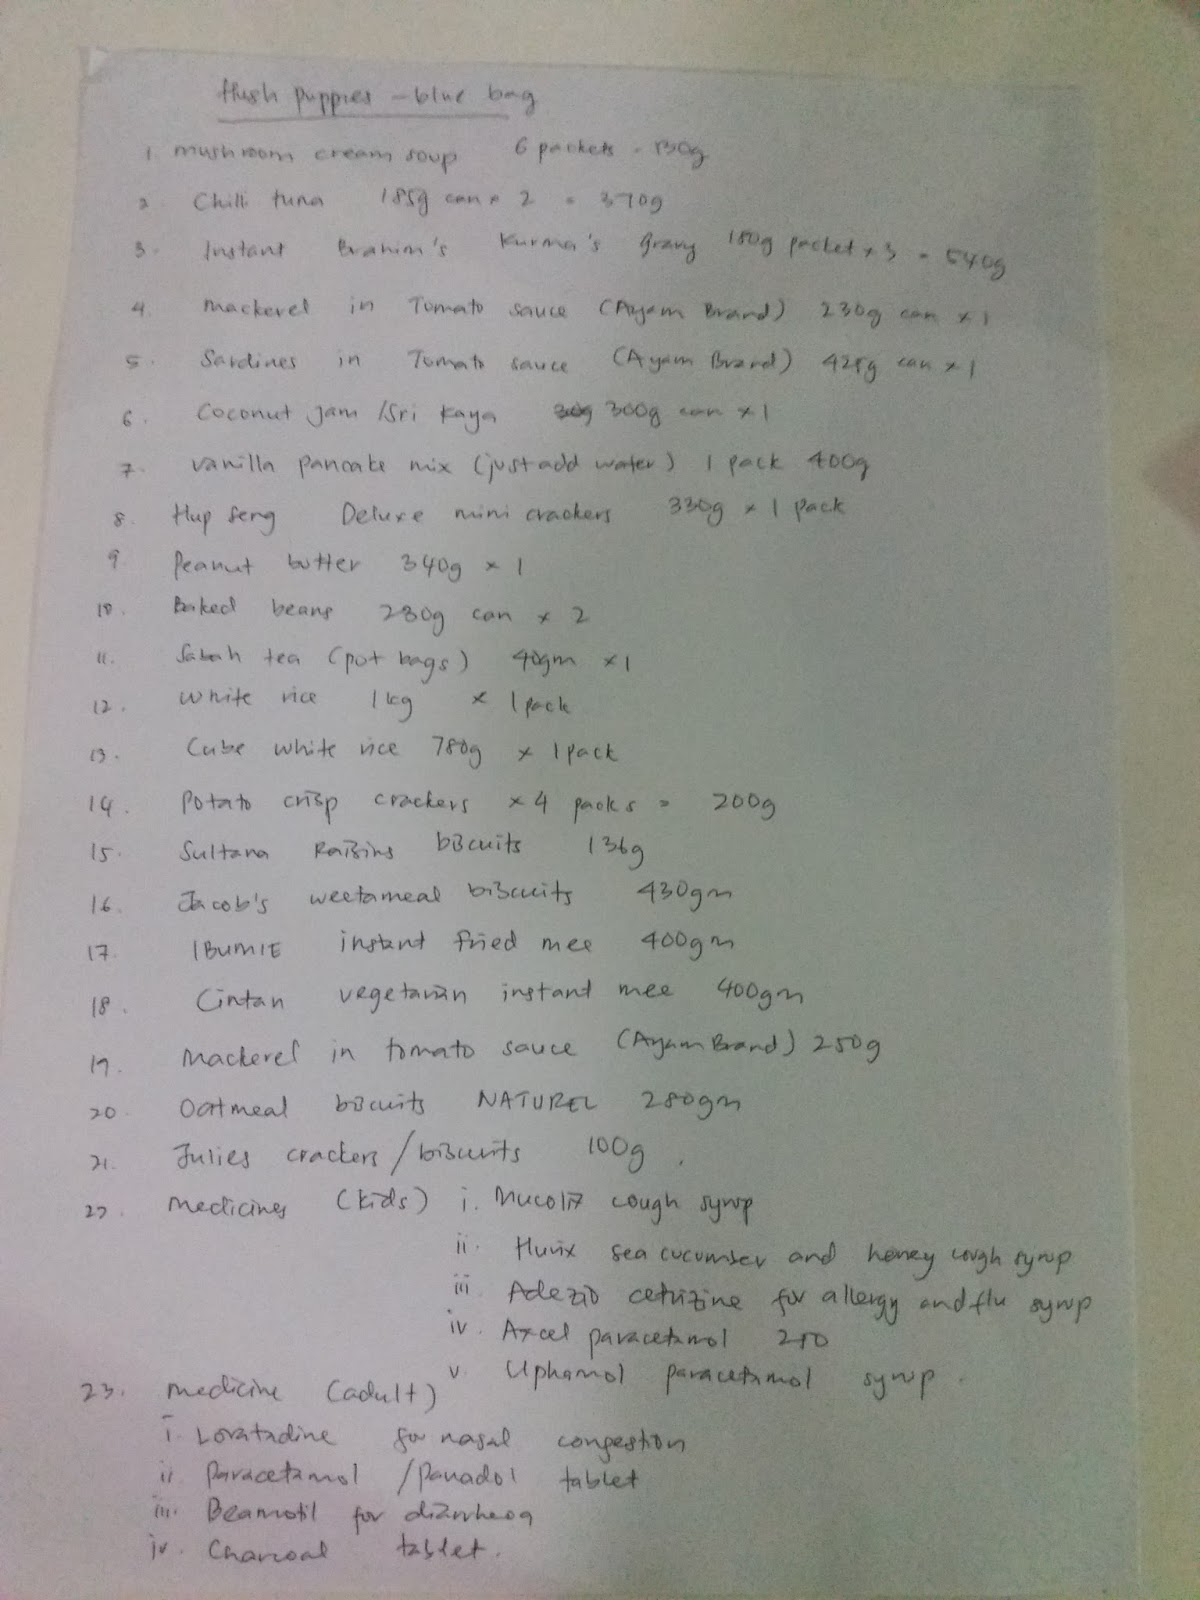 Hush puppies - blue bag
1 mushroom cream soup 6 packets = 130g
2 Chilli tuna 185g can x 2 = 370g
3. Instant Brahim's Kurma's Gravy 180g packet x 3 = 540g
4. Mackerel in Tomato sauce (Ayam Brand) 230g can x 1
5. Sardines in Tomato sauce (Ayam Brand) 425g can x 1
6. Coconut jam /Sri Kaya 300g can x 1
7. Vanilla pancake mix (just add water) 1 pack 400g
8. Hup Seng Deluxe mini crackers 330g x 1 pack
9 Peanut butter 340g x 1
10. Baked beans 230g can x 2
11. Sabah tea (pot bags) 40gm x1
12. White rice 1kg x 1 pack
13. Cube white rice 780g x 1 pack
14. Potato crisp crackers x 4 packs = 200g
15. Sultana Raisins biscuits 136g
16. Jacob's weetameal biscuits 430gm
17. IBUMIE instant fried mee 400gm
18. Cintan vegetarian instant mee 400gm
19. Mackerel in tomato sauce (Ayam Brand) 230g
20. Oatmeal biscuits NATUREL 280gm
21. Julies crackers/biscuits 100g.
22. Medicines (kids) i. Mucolix cough syrup
ii. Hurix sea cucumber and honey cough syrup
iii Adezio cetrizine for allergy and flu syrup
iv. Axcel paracetamol 250
v. Uphamol paracetamol syrup.
23. Medicine (adult)
i. Loratadine for nasal congestion
ii paracetamol /panadol tablet
iii. Beamotil for diarrheoa
iv. Charcoal tablet.